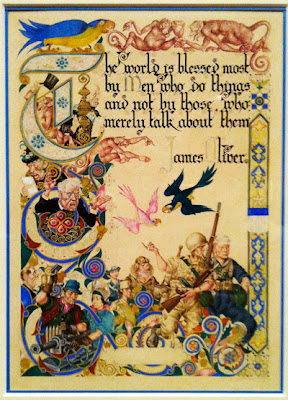 The world is blessed most
by Men who do things
and not by those who
merely talk about them
James Oliver.